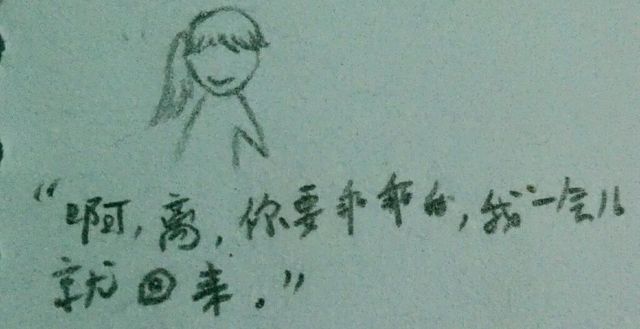 “啊，离，你要乖乖的，我一会儿
就回来。”